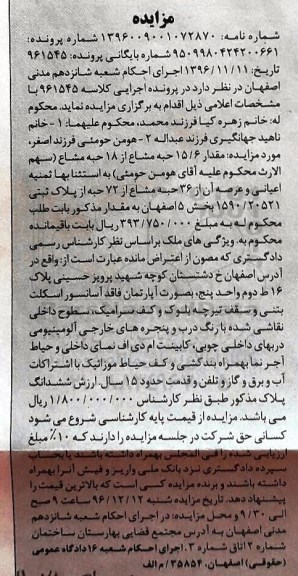 مزایده
شماره نامه: ۱۳۹۶۰۰۹۰۰۱۰۷۲۸۷۰ شماره پرونده:
۹۵۰۹۹۸۰۴۲۴۲۰۰۶۶۱ شماره بایگانی پرونده: ۹۶۱۵۴۵
تاریخ: ۱۳۹۶/۱۱/۱۱ اجرای احکام شعبه شانزدهم مدنی
اصفهان در نظر دارد در پرونده اجرایی کلاسه ۹۶۱۵۴۵ با
مشخصات اعلامی ذیل اقدام به برگزاری مزایده نماید. محکوم
له: خانم زهره کیا فرزند محمد، محکوم علیهما: ۱- خانم
ناهید جهانگیری فرزند عبداله ۲- هومن حومئی فرزند اصغر،
مورد مزایده: مقدار ۱۵/۶ حبه مشاع از ۱۸ حبه مشاع (سهم
الارث محکوم علیه آقای هومن حومئی) به استثنا بها ثمنیه
اعیانی و عرصه آن از ۳۶ حبه مشاع از ۷۲ حبه از پلاک ثبتی
۱۵۹۰/۲۰۵۲۱ بخش ۵ اصفهان به مقدار مذکور بابت طلب
محکوم له به مبلغ ۳۹۳/۷۵۰/۰۰۰ ریال بابت باقیمانده
محکوم به. ویژگی های ملک براساس نظر کارشناس رسمی
دادگستری که مصون از اعتراض مانده عبارت است از: واقع در
آدرس اصفهان خ دشتستان کوچه شهید پرویز حسینی پلاک
۱۶ ط دوم واحد پنج، بصورت آپارتمان فاقد آسانسور اسکلت
بتنی و سقف تیرچه بلوک و کف سرامیک، سطوح داخلی
نقاشی شده با رنگ درب و پنجره های خارجی آلومینیومی
دربهای داخلی چوبی، کابینت ام دی اف نمای داخلی و حیاط
آجر نما بهمراه بندکشی و کف حیاط موزائیک با اشتراکات
آب و برق و گاز و تلفن و قدمت حدود ۱۵ سال. ارزش ششدانگ
پلاک مذکور طبق نظر کارشناس ۱/۸۰۰/۰۰۰/۰۰۰ ریال
می باشد. مزایده از قیمت پایه کارشناسی شروع می شود
کسانی حق شرکت در جلسه مزایده را دارند که ۱۰٪ مبلغ
ارزیابی شده را فی المجلس بهمراه داشته باشند یا بحساب
سپرده دادگستری نزد بانک ملی واریز و فیش آنرا بهمراه
داشته باشند و برنده مزایده کسی است که بالاترین قیمت را
پیشنهاد دهد. تاریخ مزایده شنبه ۹۶/۱۲/۱۲ ساعت ۹ صبح
الی ۹/۳۰ و محل مزایده: در اجرای احکام شعبه شانزدهم
مدنی اصفهان به آدرس مجتمع قضایی بهارستان ساختمان
شماره ۲ اتاق شماره ۳. اجرای احکام شعبه ۱۶ دادگاه عمومی
(حقوقی) اصفهان. ۳۵۸۵۴/ م الف